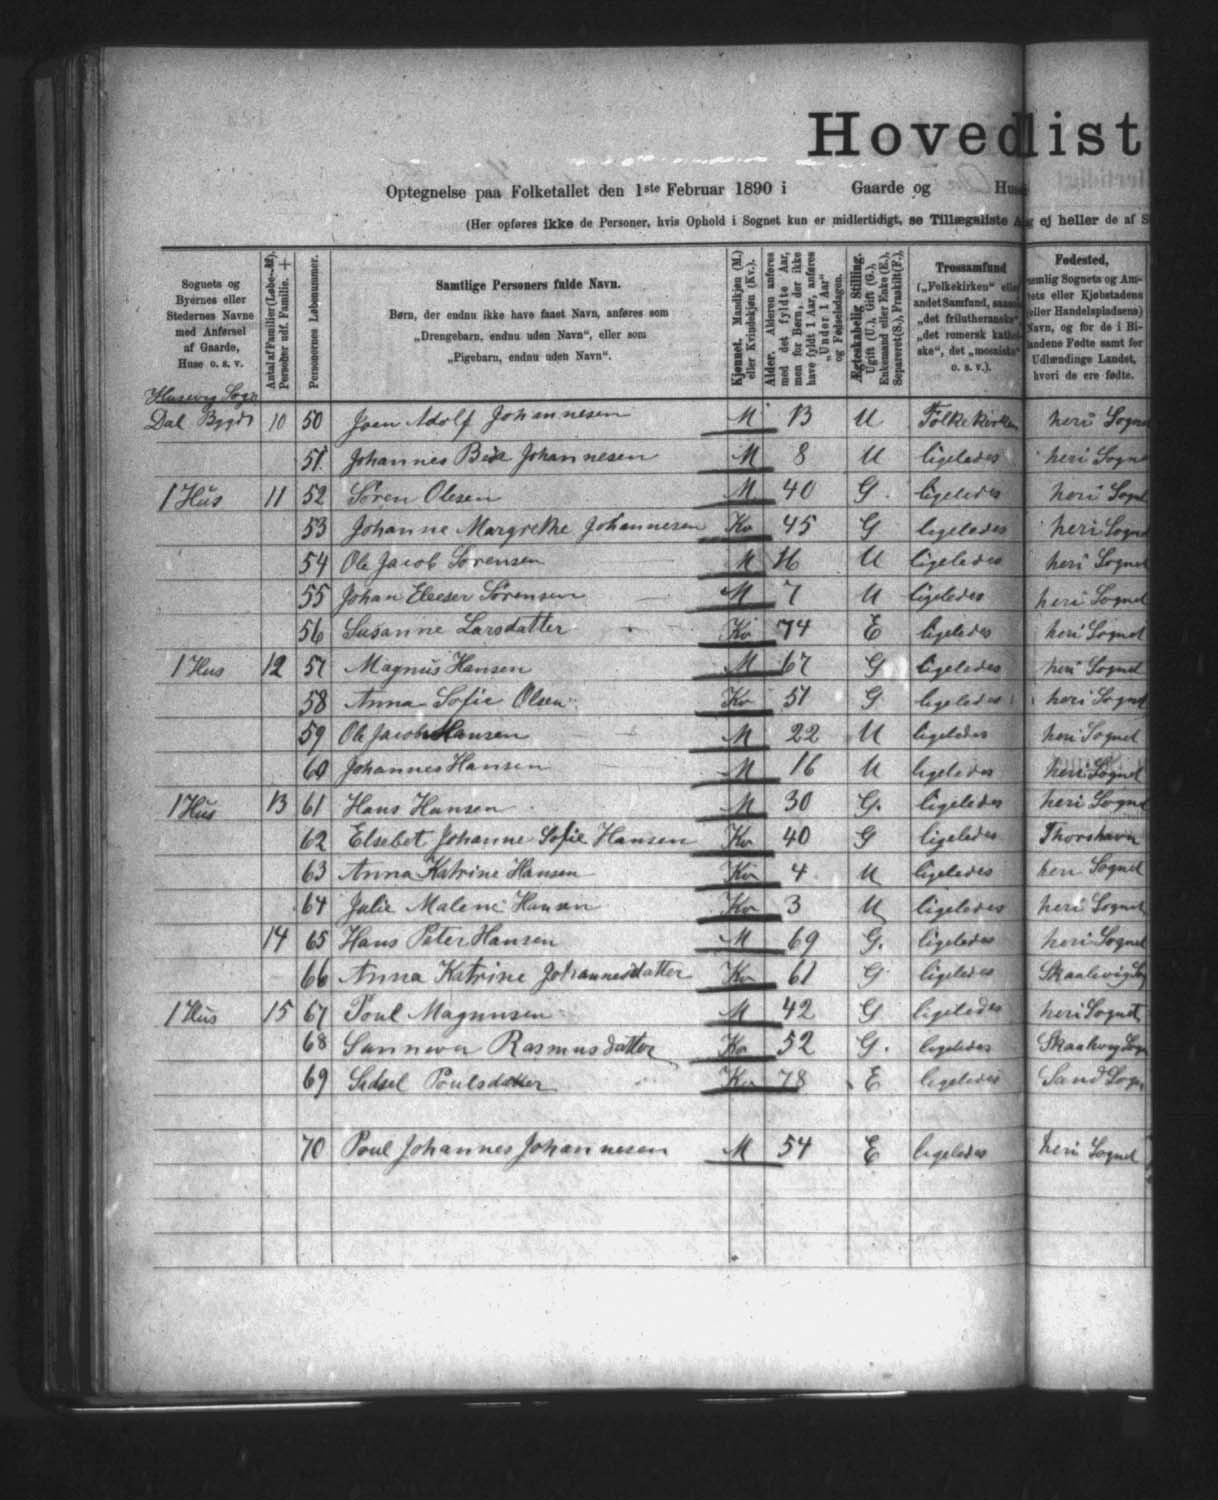 Hovedlist
Optegnelse paa Folketallet den 1ste Februar 1890 i Gaarde og Huse
(Her opføres ikke de Personer, hvis Ophold i Sognet kun er midlertidigt, se Tillægsliste A, og ej heller de af S
Sognets og Byernes eller Stedernes Navne med Anførsel af Gaarde, Huse o. s. v.
Antal af Familier (Løbe-№). Personer udf. Familie. +
Personernes Løbenummer.
Samtlige Personers fulde Navn.
Børn, der endnu ikke have faaet Navn, anføres som
„Drengebarn, endnu uden Navn“, eller som
„Pigebarn, endnu uden Navn“.
Kjønnet. Mandkjøn (M.) eller Kvindekjøn (Kv.).
Alder. Alderen anføres med det fyldte Aar, men for Børn, der ikke have fyldt 1 Aar, anføres „Under 1 Aar“ og Fødselsdagen.
Ægteskabelig Stilling. Ugift (U.), Gift (G.), Enkemand eller Enke (E.), Separeret (S.), Fraskilt (F.).
Trossamfund („Folkekirken“ eller andet Samfund, saasom „det frilutheranske“, „det romersk katholske“, det „mosaiske“ o. s. v.).
Fødested, nemlig Sognets og Amtets eller Kjøbstadens (eller Handelspladsens) Navn, og for de i Bilandene Fødte samt for Udlændinge Landet, hvori de ere fødte.
Husevig Sogn
Dal Bygd 10 50 Joen Adolf Johannesen M 13 U Folkekirken heri Sognet
51 Johannes Johannesen M 8 U ligeledes heri Sognet
1 Hus 11 52 Søren Olesen M 40 G. ligeledes heri Sognet
53 Johanne Margrethe Johannesen Kv 45 G ligeledes heri Sognet
54 Ole Jacob Sørensen M 16 U ligeledes heri Sognet
55 Johan Elieser Sørensen M 7 U ligeledes heri Sognet
56 Susanne Larsdatter Kv 74 E ligeledes heri Sognet
1 Hus 12 57 Magnus Hansen M 67 G ligeledes heri Sognet
58 Anna Sofie Olsen Kv 51 G ligeledes heri Sognet
59 Ole Jacob Hansen M 22 U ligeledes heri Sognet
60 Johannes Hansen M 16 U ligeledes heri Sognet
1 Hus 13 61 Hans Hansen M 30 G. ligeledes heri Sognet
62 Elsebet Johanne Sofie Hansen Kv 40 G ligeledes Thorshavn
63 Anna Katrine Hansen Kv 4 U ligeledes heri Sognet
64 Julie Malene Hansen Kv 3 U ligeledes heri Sognet
14 65 Hans Peter Hansen M 69 G. ligeledes heri Sognet
66 Anna Katrine Johannesdatter Kv 61 G ligeledes Skaalevig Sog
1 Hus 15 67 Poul Magnussen M 42 G ligeledes heri Sognet
68 Sunneva Rasmusdatter Kv 52 G. ligeledes Skaalevig Sogn
69 Sidsel Poulsdatter Kv 78 E ligeledes Sand Sogn
70 Poul Johannes Johannesen M 54 E ligeledes heri Sognet